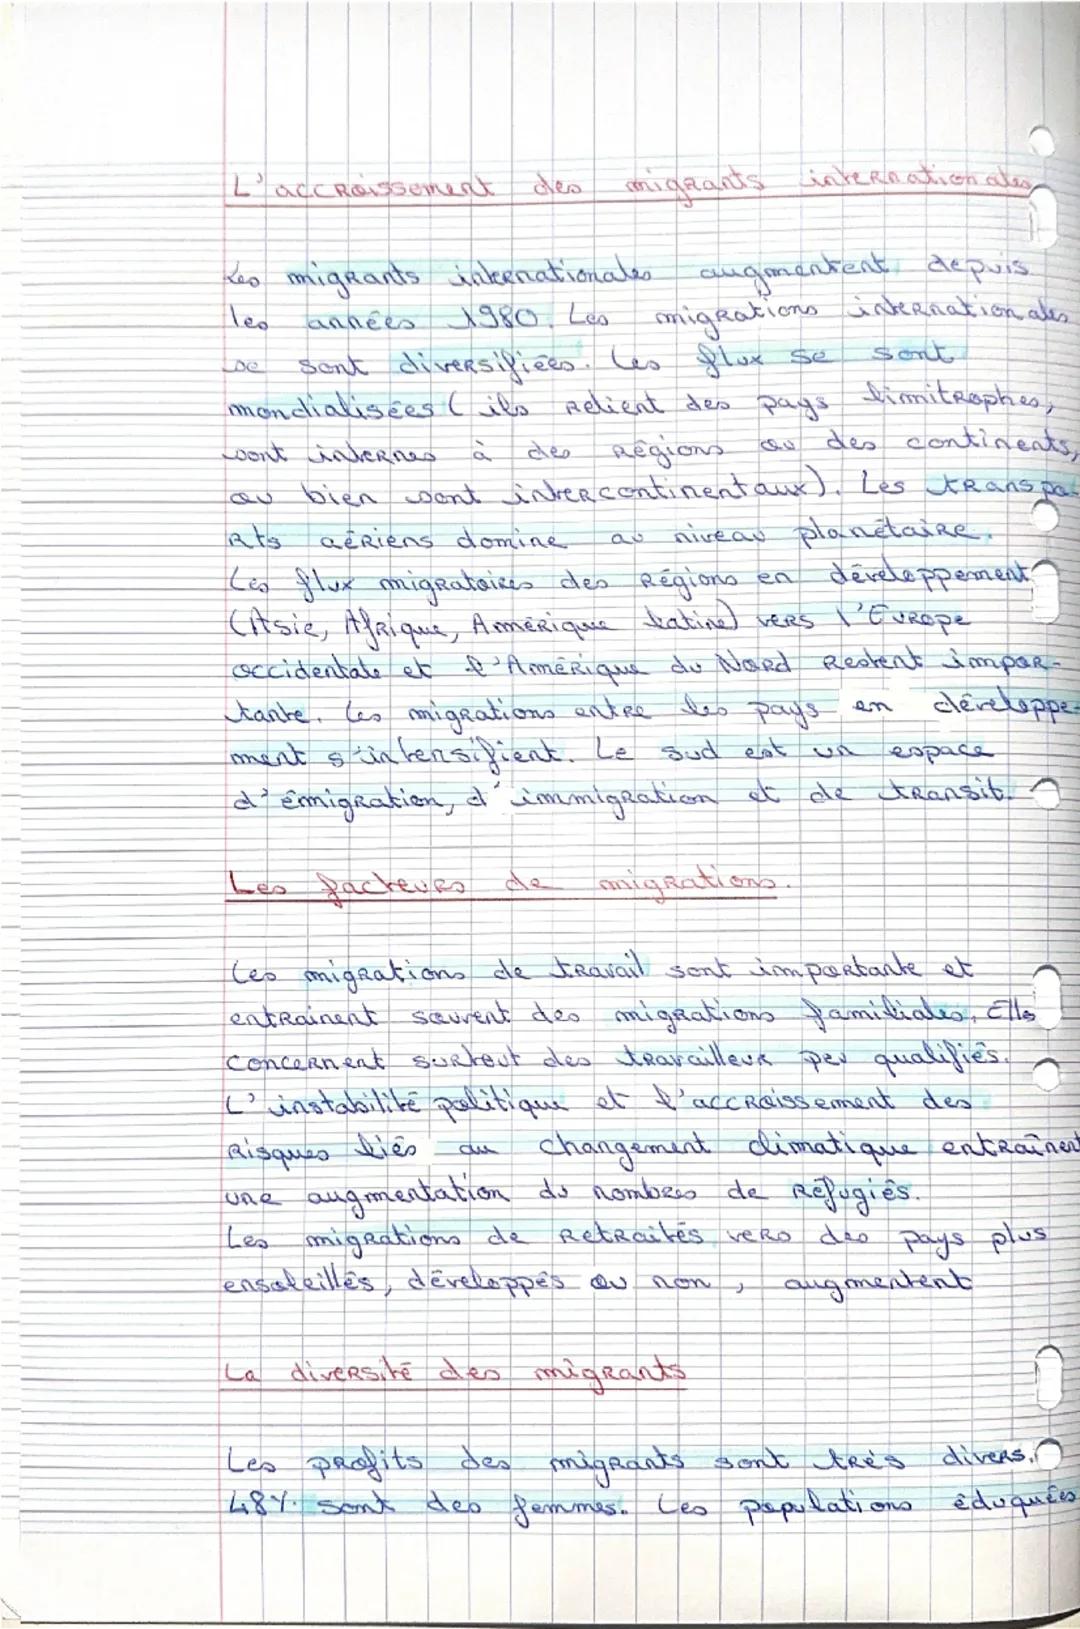 L'accroissement des migrants internationales
Les migrants internationales augmentent depuis
les années 1980. Les migrations internationales
se sont diversifiées. Les flux se sont
mondialisées ( ils relient des pays limitrophes,
sont internes à des régions ou des continents,
ou bien sont intercontinentaux). Les transpo-
rts aériens domine au niveau planétaire.
Les flux migratoires des régions en développement
(Asie, Afrique, Amérique latine) vers l'Europe
occidentale et l'Amérique du Nord restent impor-
tante. Les migrations entre les pays en développe-
ment s'intensifient. Le sud est un espace
d'émigration, d'immigration et de transit.
Les facteurs de migrations.
Les migrations de travail sont importante et
entrainent souvent des migrations familiales. Elles
concernent surtout des travailleur peu qualifiés.
L'instabilité politique et l'accroissement des
risques liés au changement climatique entraînent
une augmentation du nombres de réfugiés.
Les migrations de retraités vers des pays plus
ensoleillés, développés ou non, augmentent
La diversité des migrants
Les profits des migrants sont très divers.
48% sont des femmes. Les populations éduquées